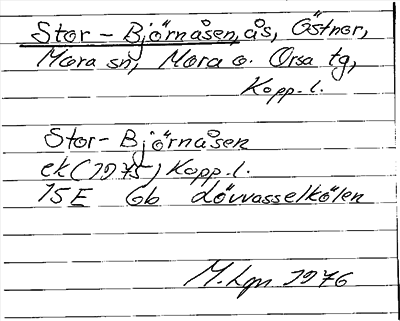 Stor-Björnåsen, ås, Östnor,
Mora sn, Mora o. Orsa tg,
Kopp. l.
Stor-Björnåsen
ek (1975) Kopp. l.
15E 6b Lövvasselkölen
M. Lgn 1976